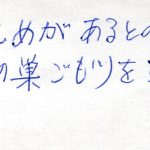 しめがあるとの
の巣ごもりを